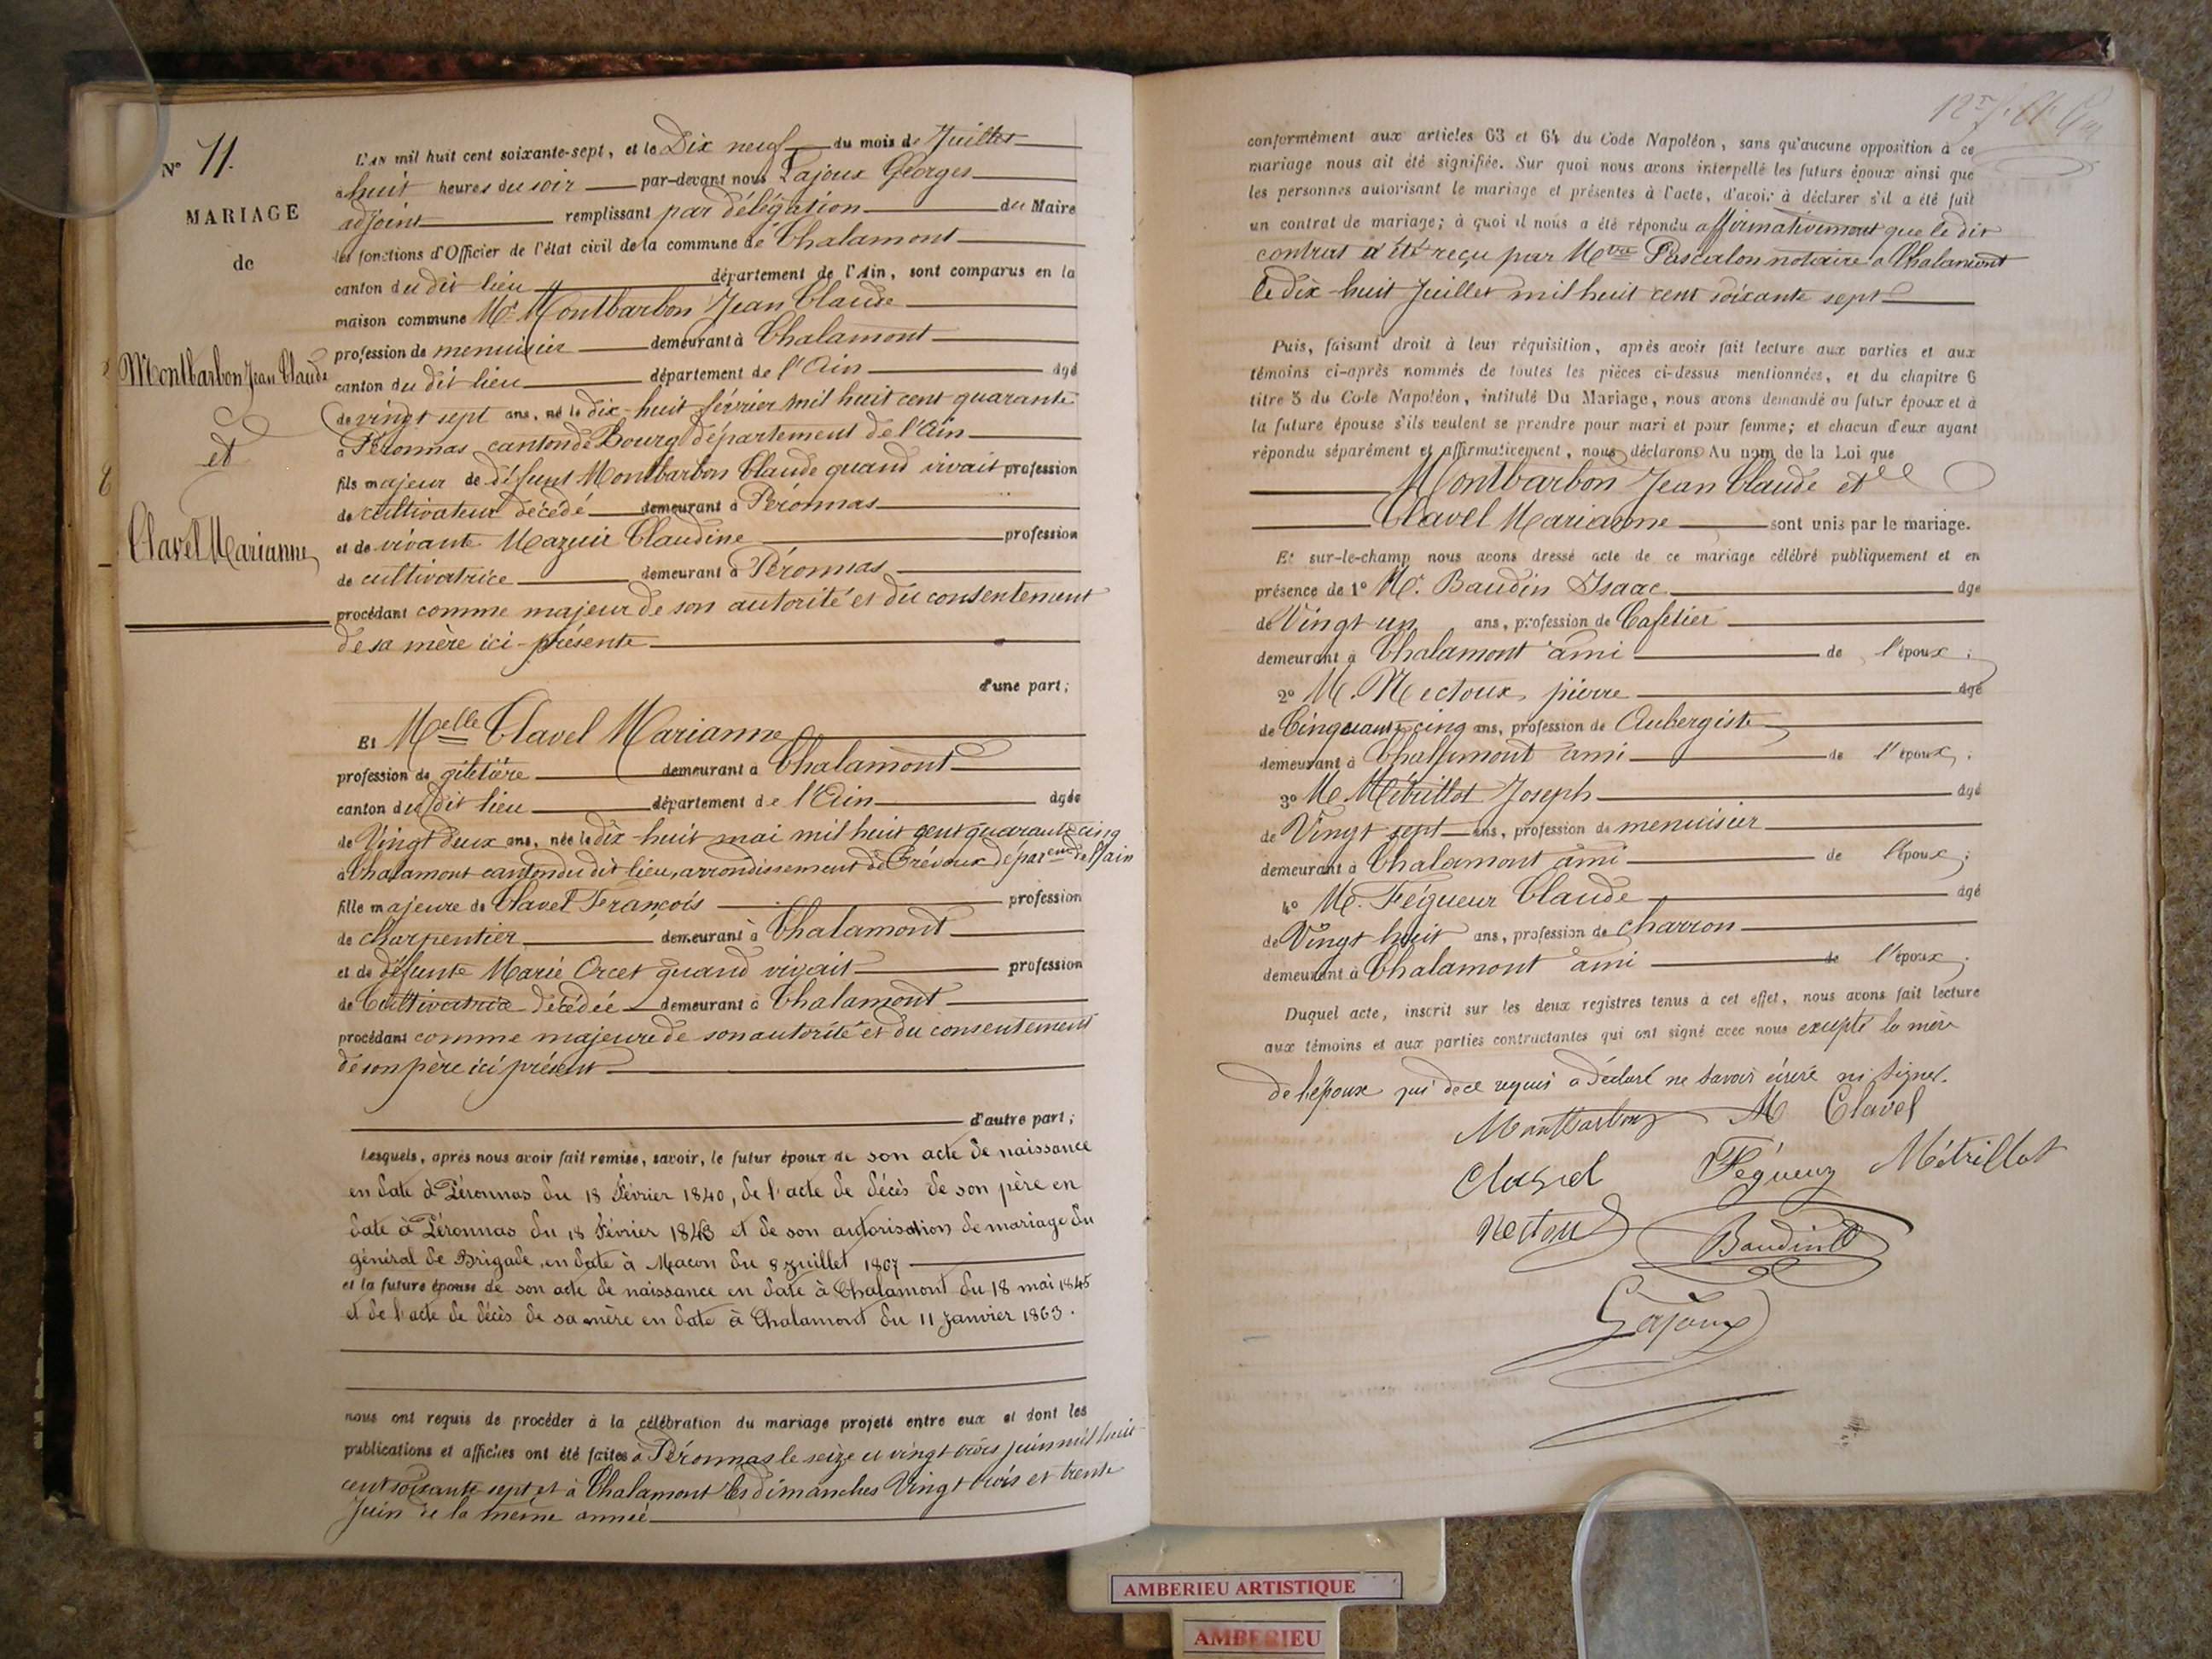 N° 11.
MARIAGE
de
Montbarbon Jean Claude
et
Clavel Marianne
L'AN mil huit cent soixante-sept, et le Dix neuf du mois de Juillet
à huit heures du soir par-devant nous Lajoux Georges
adjoint remplissant par délégation du Maire
les fonctions d'Officier de l'état civil de la commune de Chalamont
canton du dit lieu département de l'Ain, sont comparus en la
maison commune Mr Montbarbon Jean Claude
profession de menuisier demeurant à Chalamont
canton du dit lieu département de l'Ain âgé
de vingt sept ans, né le dix-huit février mil huit cent quarante
à Péronnas canton de Bourg département de l'Ain
fils majeur de défunt Montbarbon Claude quand vivait profession
de cultivateur décédé demeurant à Péronnas
et de vivante Mazuir Claudine profession
de cultivatrice demeurant à Péronnas
procédant comme majeur de son autorité et du consentement
de sa mère ici-présente
d'une part;
Et Melle Clavel Marianne
profession de giletière demeurant à Chalamont
canton du dit lieu département de l'Ain âgée
de Vingt deux ans, née le dix-huit mai mil huit cent quarante cinq
à Chalamont canton du dit lieu, arrondissement de Trévoux départemt de l'ain
fille majeure de Clavel François profession
de charpentier demeurant à Chalamont
et de défunte Marie Orcet quand vivait profession
de Cultivatrice décédée demeurant à Chalamont
procédant comme majeure de son autorité et du consentement
de son père ici présent
d'autre part;
Lesquels, après nous avoir fait remise, savoir, le futur époux de son acte de naissance
en date à Péronnas du 18 Février 1840, de l'acte de décès de son père en
date à Péronnas du 18 Février 1843 et de son autorisation de mariage du
général de Brigade, en date à Macon du 8 juillet 1867
et la future épouse de son acte de naissance en date à Chalamont du 18 mai 1845
et de l'acte de décès de sa mère en date à Chalamont du 11 Janvier 1863.
nous ont requis de procéder à la célébration du mariage projeté entre eux et dont les
publications et affiches ont été faites à Péronnas le seize et vingt trois juin mil huit
cent soixante sept et à Chalamont les dimanches Vingt trois et trente
Juin de la même année
conformément aux articles 63 et 64 du Code Napoléon, sans qu'aucune opposition à ce
mariage nous ait été signifiée. Sur quoi nous avons interpellé les futurs époux ainsi que
les personnes autorisant le mariage et présentes à l'acte, d'avoir à déclarer s'il a été fait
un contrat de mariage; à quoi il nous a été répondu affirmativement que le dit
contrat a été reçu par Mtre Pascalon notaire a Chalamont
le dix-huit Juillet mil huit cent soixante sept
Puis, faisant droit à leur réquisition, après avoir fait lecture aux parties et aux
témoins ci-après nommés de toutes les pièces ci-dessus mentionnées, et du chapitre 6
titre 5 du Code Napoléon, intitulé Du Mariage, nous avons demandé au futur époux et à
la future épouse s'ils veulent se prendre pour mari et pour femme; et chacun d'eux ayant
répondu séparément et affirmativement, nous déclarons Au nom de la Loi que
Montbarbon Jean Claude et
Clavel Marianne sont unis par le mariage.
Et sur-le-champ nous avons dressé acte de ce mariage célébré publiquement et en
présence de 1° Mr. Baudin Isaac âgé
de Vingt un ans, profession de Cafetier
demeurant à Chalamont ami de l'époux;
2° M. Nectoux pierre âgé
de Cinquante cinq ans, profession de Aubergiste
demeurant à Chalamont ami de l'époux;
3° M. Métrillot Joseph âgé
de Vingt sept ans, profession de menuisier
demeurant à Chalamont ami de l'époux;
4° M. Fégueur Claude âgé
de Vingt huit ans, profession de charron
demeurant à Chalamont ami de l'époux;
Duquel acte, inscrit sur les deux registres tenus à cet effet, nous avons fait lecture
aux témoins et aux parties contractantes qui ont signé avec nous excepté la mère
de l'époux qui de ce requis a déclaré ne savoir écrire ni signer.
Montbarbon M Clavel
Clavel Fégueur Métrillot
Nectoux Baudin
Lajoux
AMBERIEU ARTISTIQUE
AMBERIEU